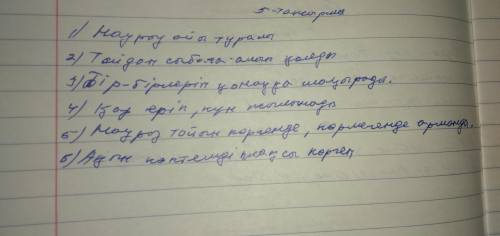 5-тапсырма
1) Наурыз айы туралы
2) Тойдан сыбаға алып қалды
3) Бір-бірлерін қонаққа шақырады.
4) Қар еріп, күн жылынады
5) Наурыз тойын көргенде, көрмегенде арманда.
6) Ауын көптегиді жақсы көрген